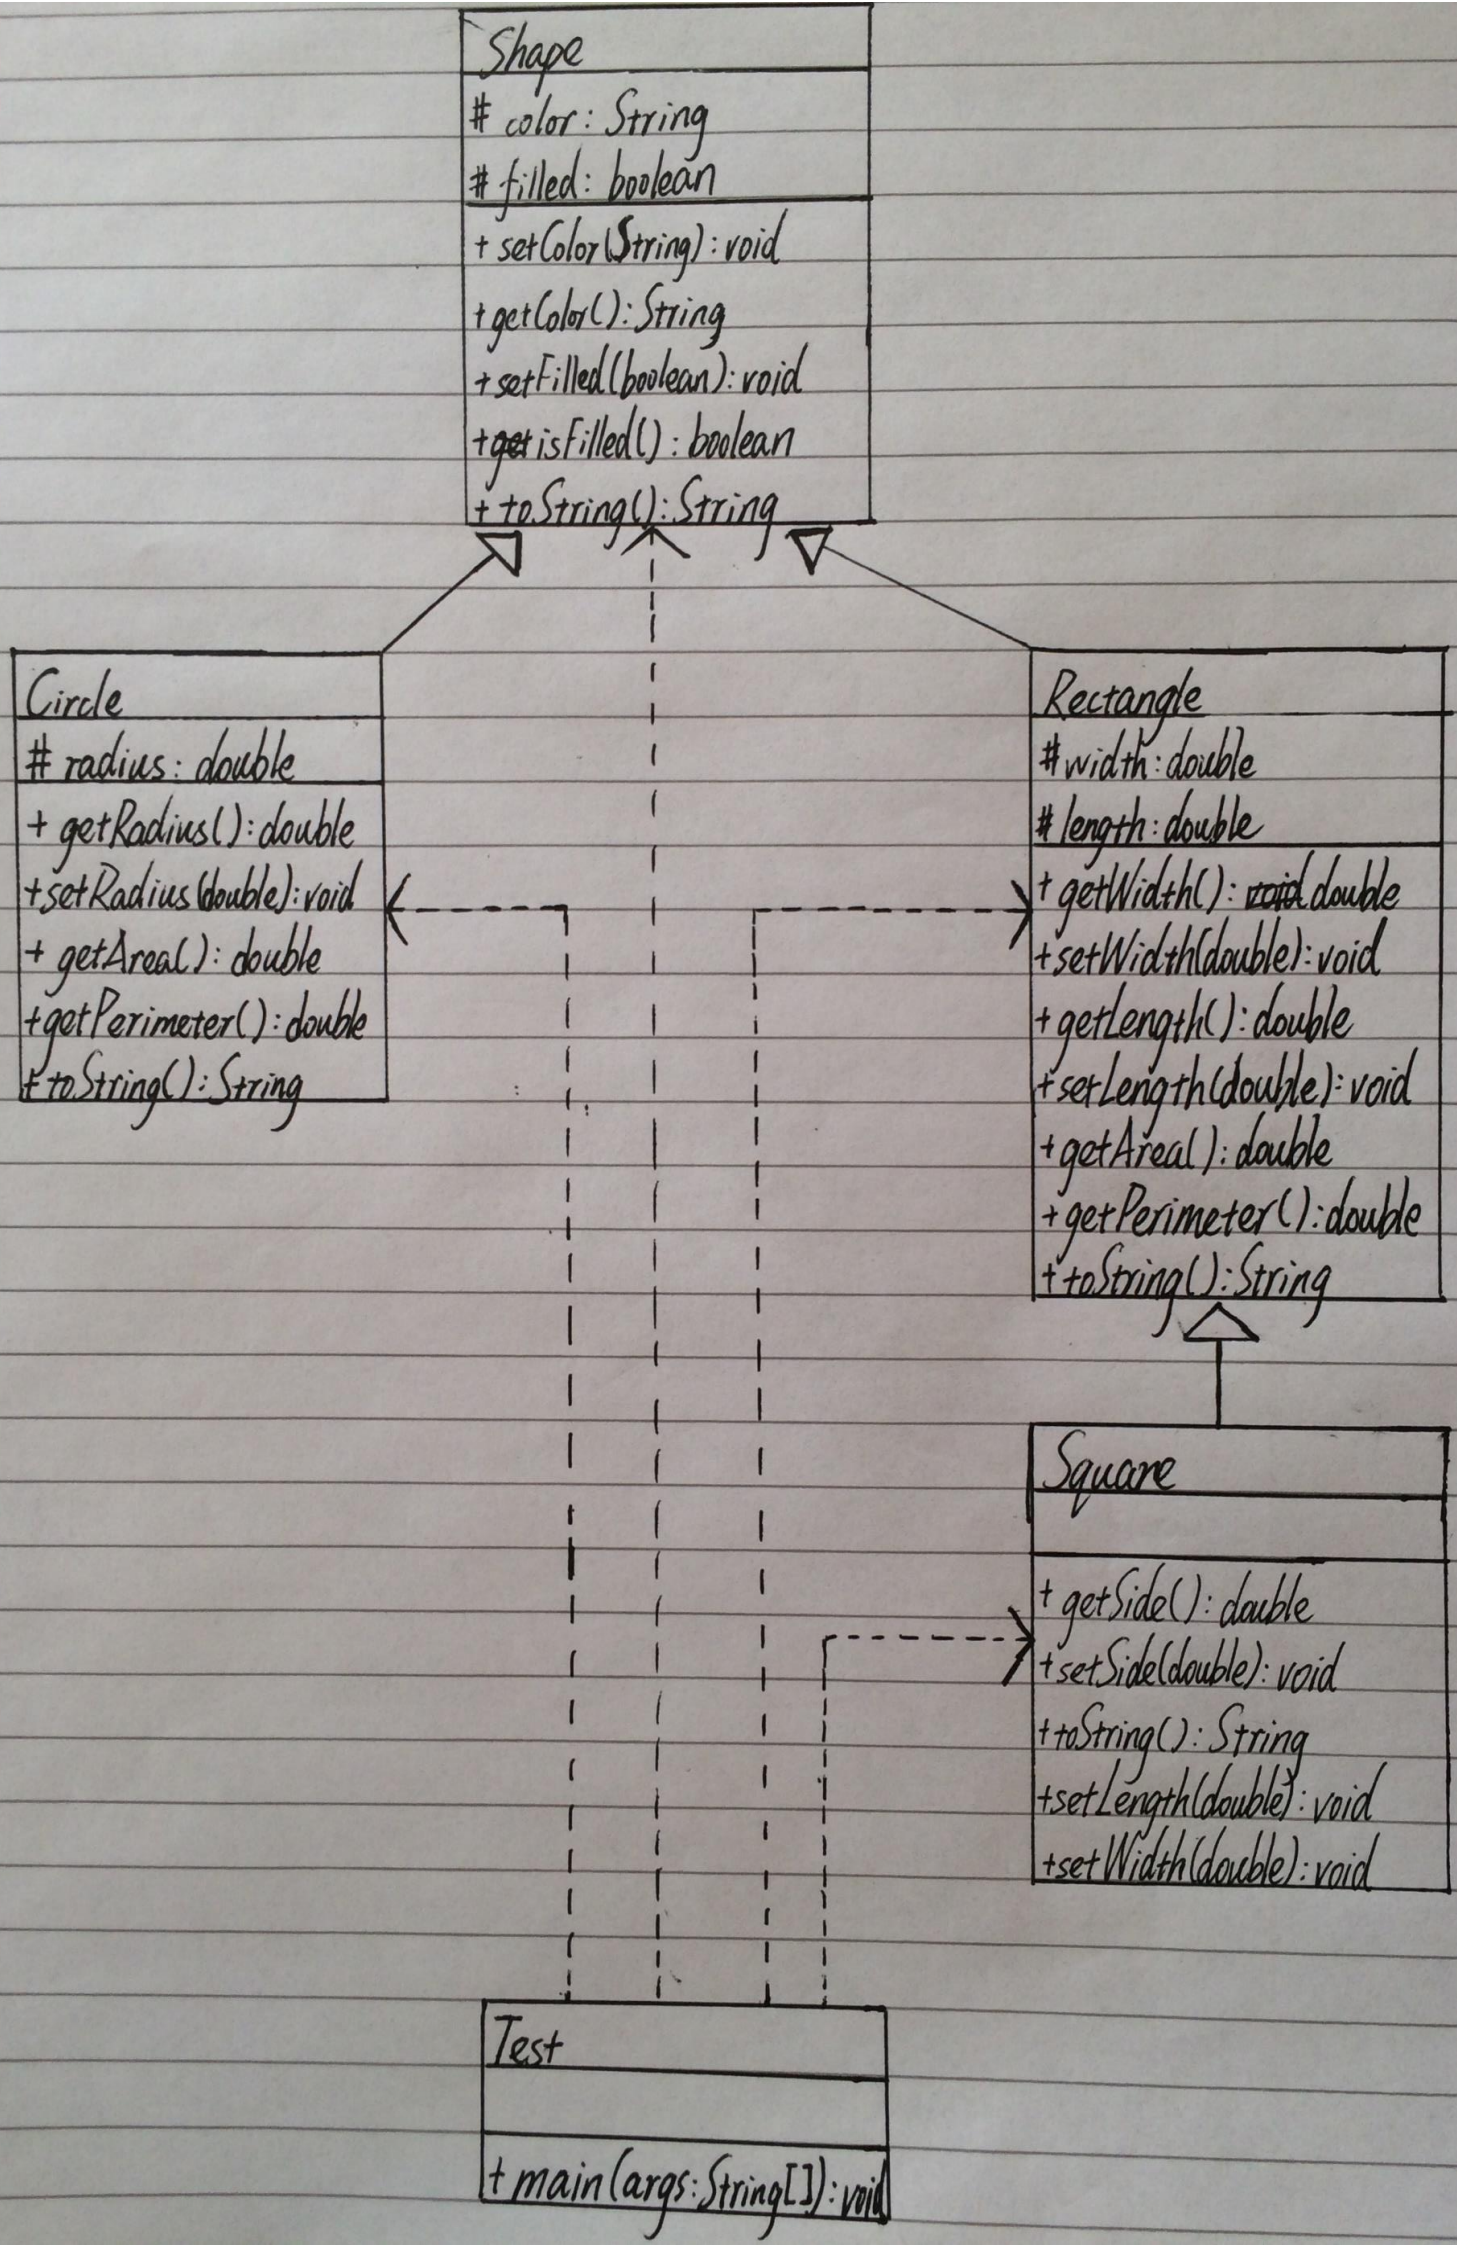 Shape
# color: String
# filled: boolean
+ setColor(String): void
+ getColor(): String
+ setFilled(boolean): void
+ isFilled(): boolean
+ toString(): String
Circle
# radius: double
+ getRadius(): double
+ setRadius(double): void
+ getArea(): double
+ getPerimeter(): double
+ toString(): String
Rectangle
# width: double
# length: double
+ getWidth(): double
+ setWidth(double): void
+ getLength(): double
+ setLength(double): void
+ getArea(): double
+ getPerimeter(): double
+ toString(): String
Square
+ getSide(): double
+ setSide(double): void
+ toString(): String
+ setLength(double): void
+ setWidth(double): void
Test
+ main(args: String[]): void